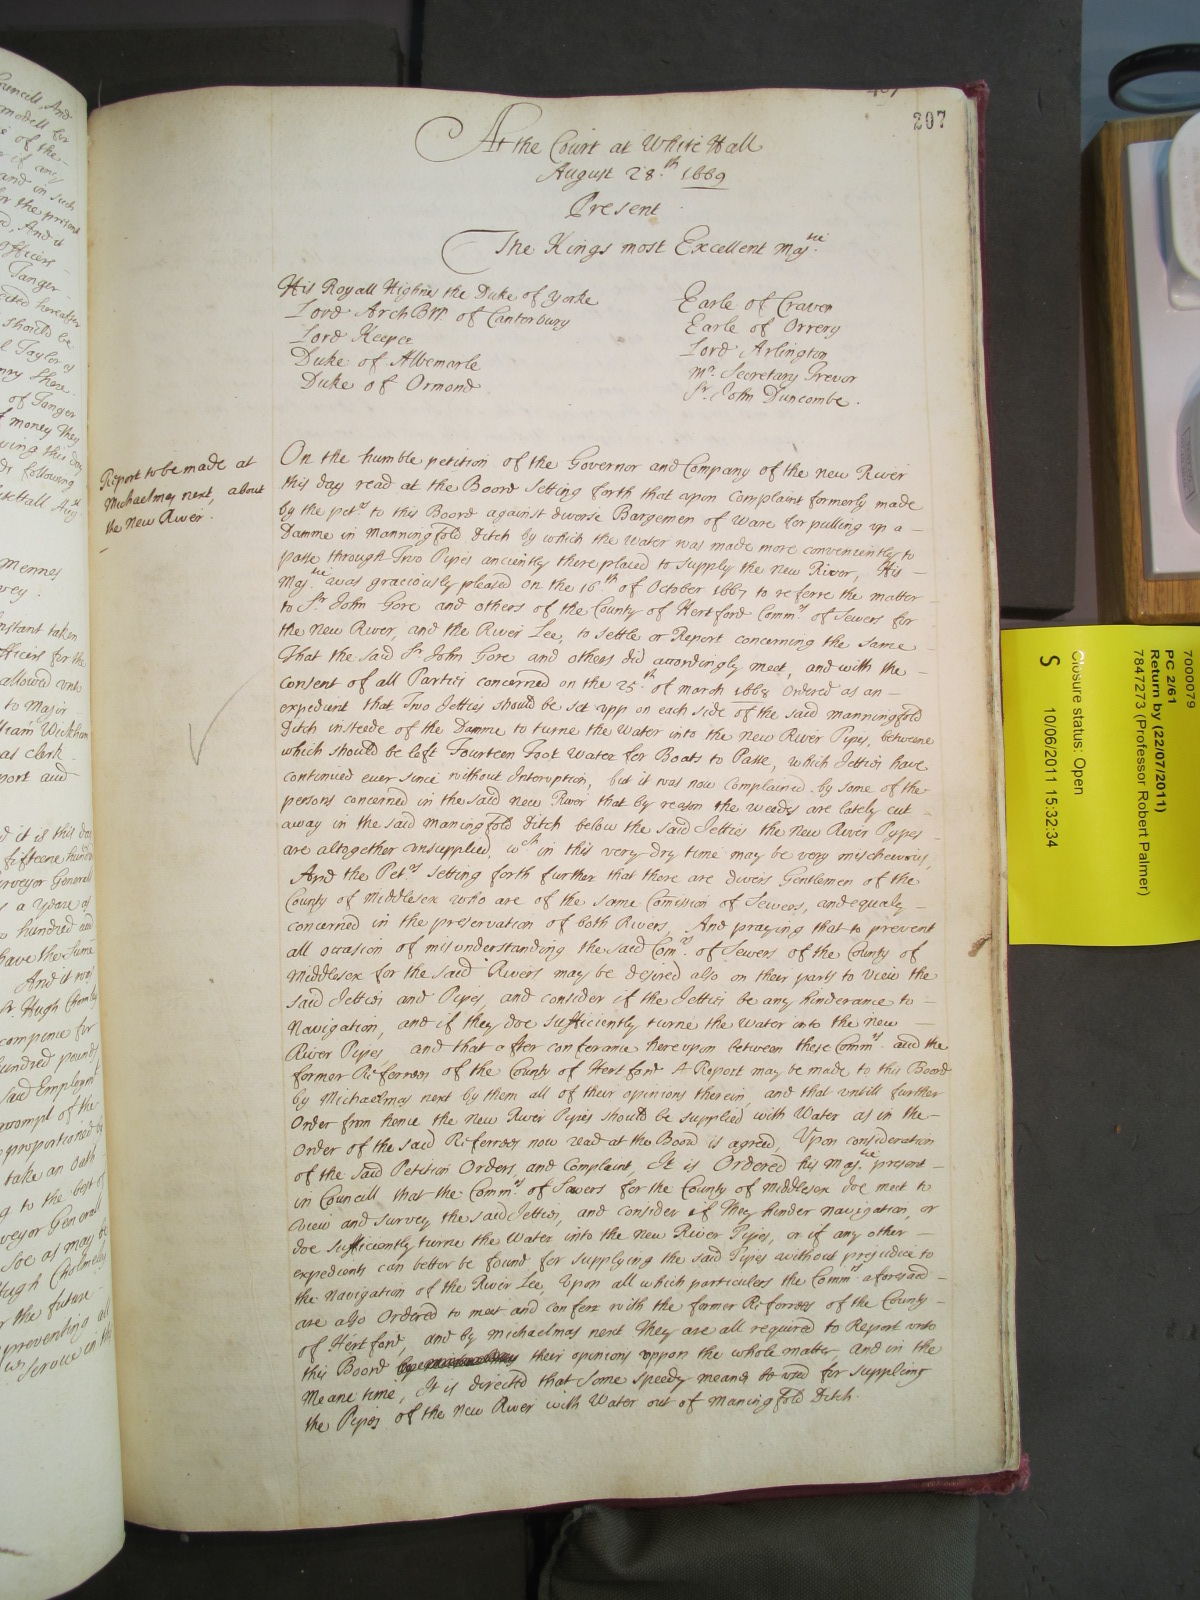 207
At the Court at White Hall
August 28.th 1669
Present
The Kings most Excellent Maj.tie
His Royall Highnes the Duke of Yorke
Lord ArchBpp. of Canterbury
Lord Keeper
Duke of Albemarle
Duke of Ormond
Earle of Craven
Earle of Orrery
Lord Arlington
Mr. Secretary Trevor
Sr. John Duncombe.
Report to be made at
Michaelmas next, about
the New River.
On the humble petition of the Governor and Company of the new River
this day read at the Board Setting forth that upon Complaint formerly made
by the petrs to this Board against diverse Bargemen of Ware for pulling up a
Damme in Manningfold Ditch by which the water was made more conveniently to
passe through Two Pipes anciently there placed to supply the new River, His
Majtie was graciously pleased on the 16th of October 1667 to referre the matter
to Sr. John Gore and others of the County of Hertford Commrs of Sewers for
the New River, and the River Lee, to settle or Report concerning the same
That the said Sr John Gore and others did accordingly meet, and with the
consent of all Parties concerned on the 25th of march 1668 Ordered as an
expedient that Two Jetties should be set upp on each side of the said manningfold
Ditch insteede of the Damme to turne the Water into the new River Pipes, betweene
which should be left Fourteen Foot Water for Boats to Passe, which Jetties have
continued ever since without Interuption, but it was now Complained by some of the
persons concerned in the said new River that by reason the weeds are lately cut
away in the said Maningfold Ditch below the said Jetties the new River Pypes
are altogether unsupplied, wch in this very dry time may be very mischeivous,
And the Petrs Setting forth further that there are divers Gentlemen of the
County of Middlesex who are of the same Comission of Sewers, and equaly
concerned in the preservation of both Rivers, And praying that to prevent
all occasion of misunderstanding the said Comrs. of Sewers of the County of
Middlesex for the said Rivers may be desired also on their parts to view the
said Jetties and Pipes, and consider if the Jetties be any hinderance to
Navigation, and if they doe sufficiently turne the Water into the new
River Pipes and that after conferance hereupon between these Commrs. and the
former Referrees of the County of Hertford A Report may be made to this Board
by Michaelmas next by them all of their opinions therein, and that untill further
Order from hence the new River Pipes should be supplied with Water as in the
Order of the said Referrees now read at the Board is agreed, Upon consideration
of the said Petition Orders, and Complaint, It is Ordered his Maj.tie present
in Councill that the Commrs. of Sewers for the County of Middlesex doe meet to
view and survey the said Jetties, and consider if They hinder navigation, or
doe sufficiently turne the Water into the new River Pipes, or if any other
expedients can better be found for supplying the said Pipes without prejudice to
the Navigation of the River Lee, Upon all which particulers the Commrs aforesaid
are also Ordered to meet and conferr with the former Referrees of the County
of Hertford, and by michaelmas next They are all required to Report unto
this Board their opinions uppon the whole matter, and in the
Meane time, It is directed that some speedy meanes be used for supplieing
the Pipes of the New River with Water out of Maningfold Ditch.
7000079
PC 2/61
Return by (22/07/2011)
7847273 (Professor Robert Palmer)
Closure status: Open
10/06/2011 15:32:34
S